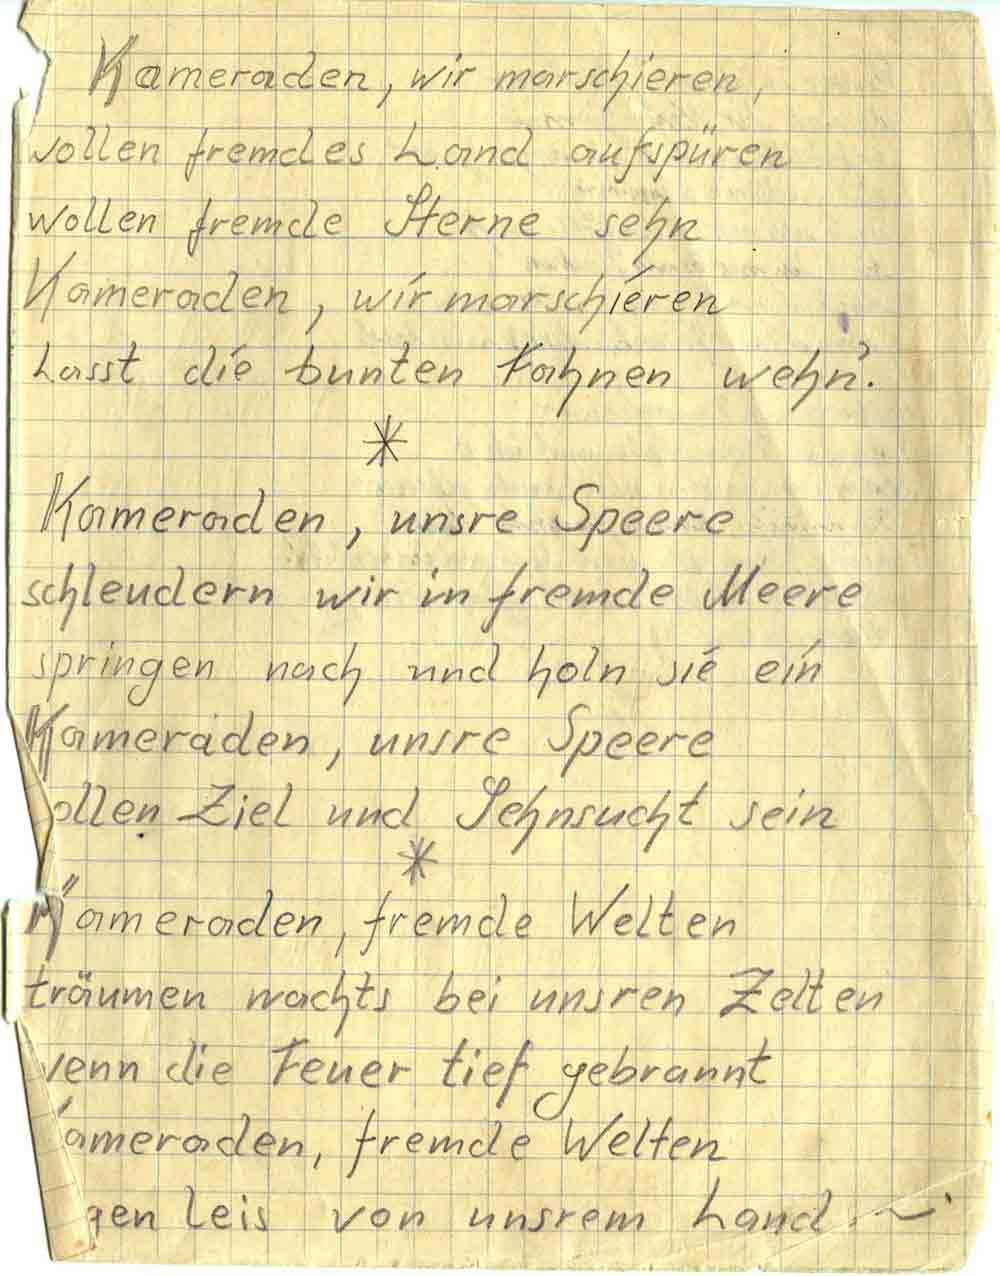 Kameraden, wir marschieren,
wollen fremdes Land aufspüren
wollen fremde Sterne sehn
Kameraden, wir marschieren
Lasst die bunten Fahnen wehn'.
*
Kameraden, unsre Speere
schleudern wir in fremde Meere
springen nach und holn sie ein
Kameraden, unsre Speere
ollen Ziel und Sehnsucht sein
*
Kameraden, fremde Welten
träumen nachts bei unsren Zelten
wenn die Feuer tief gebrannt
ameraden, fremde Welten
gen leis von unsrem Land.